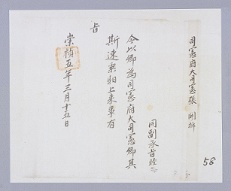 司憲府大司憲張 開坼
同副承旨
今以卿爲司憲府大司憲卿其
斯速乘馹上來事有
旨
崇禎五年三月十五日
58